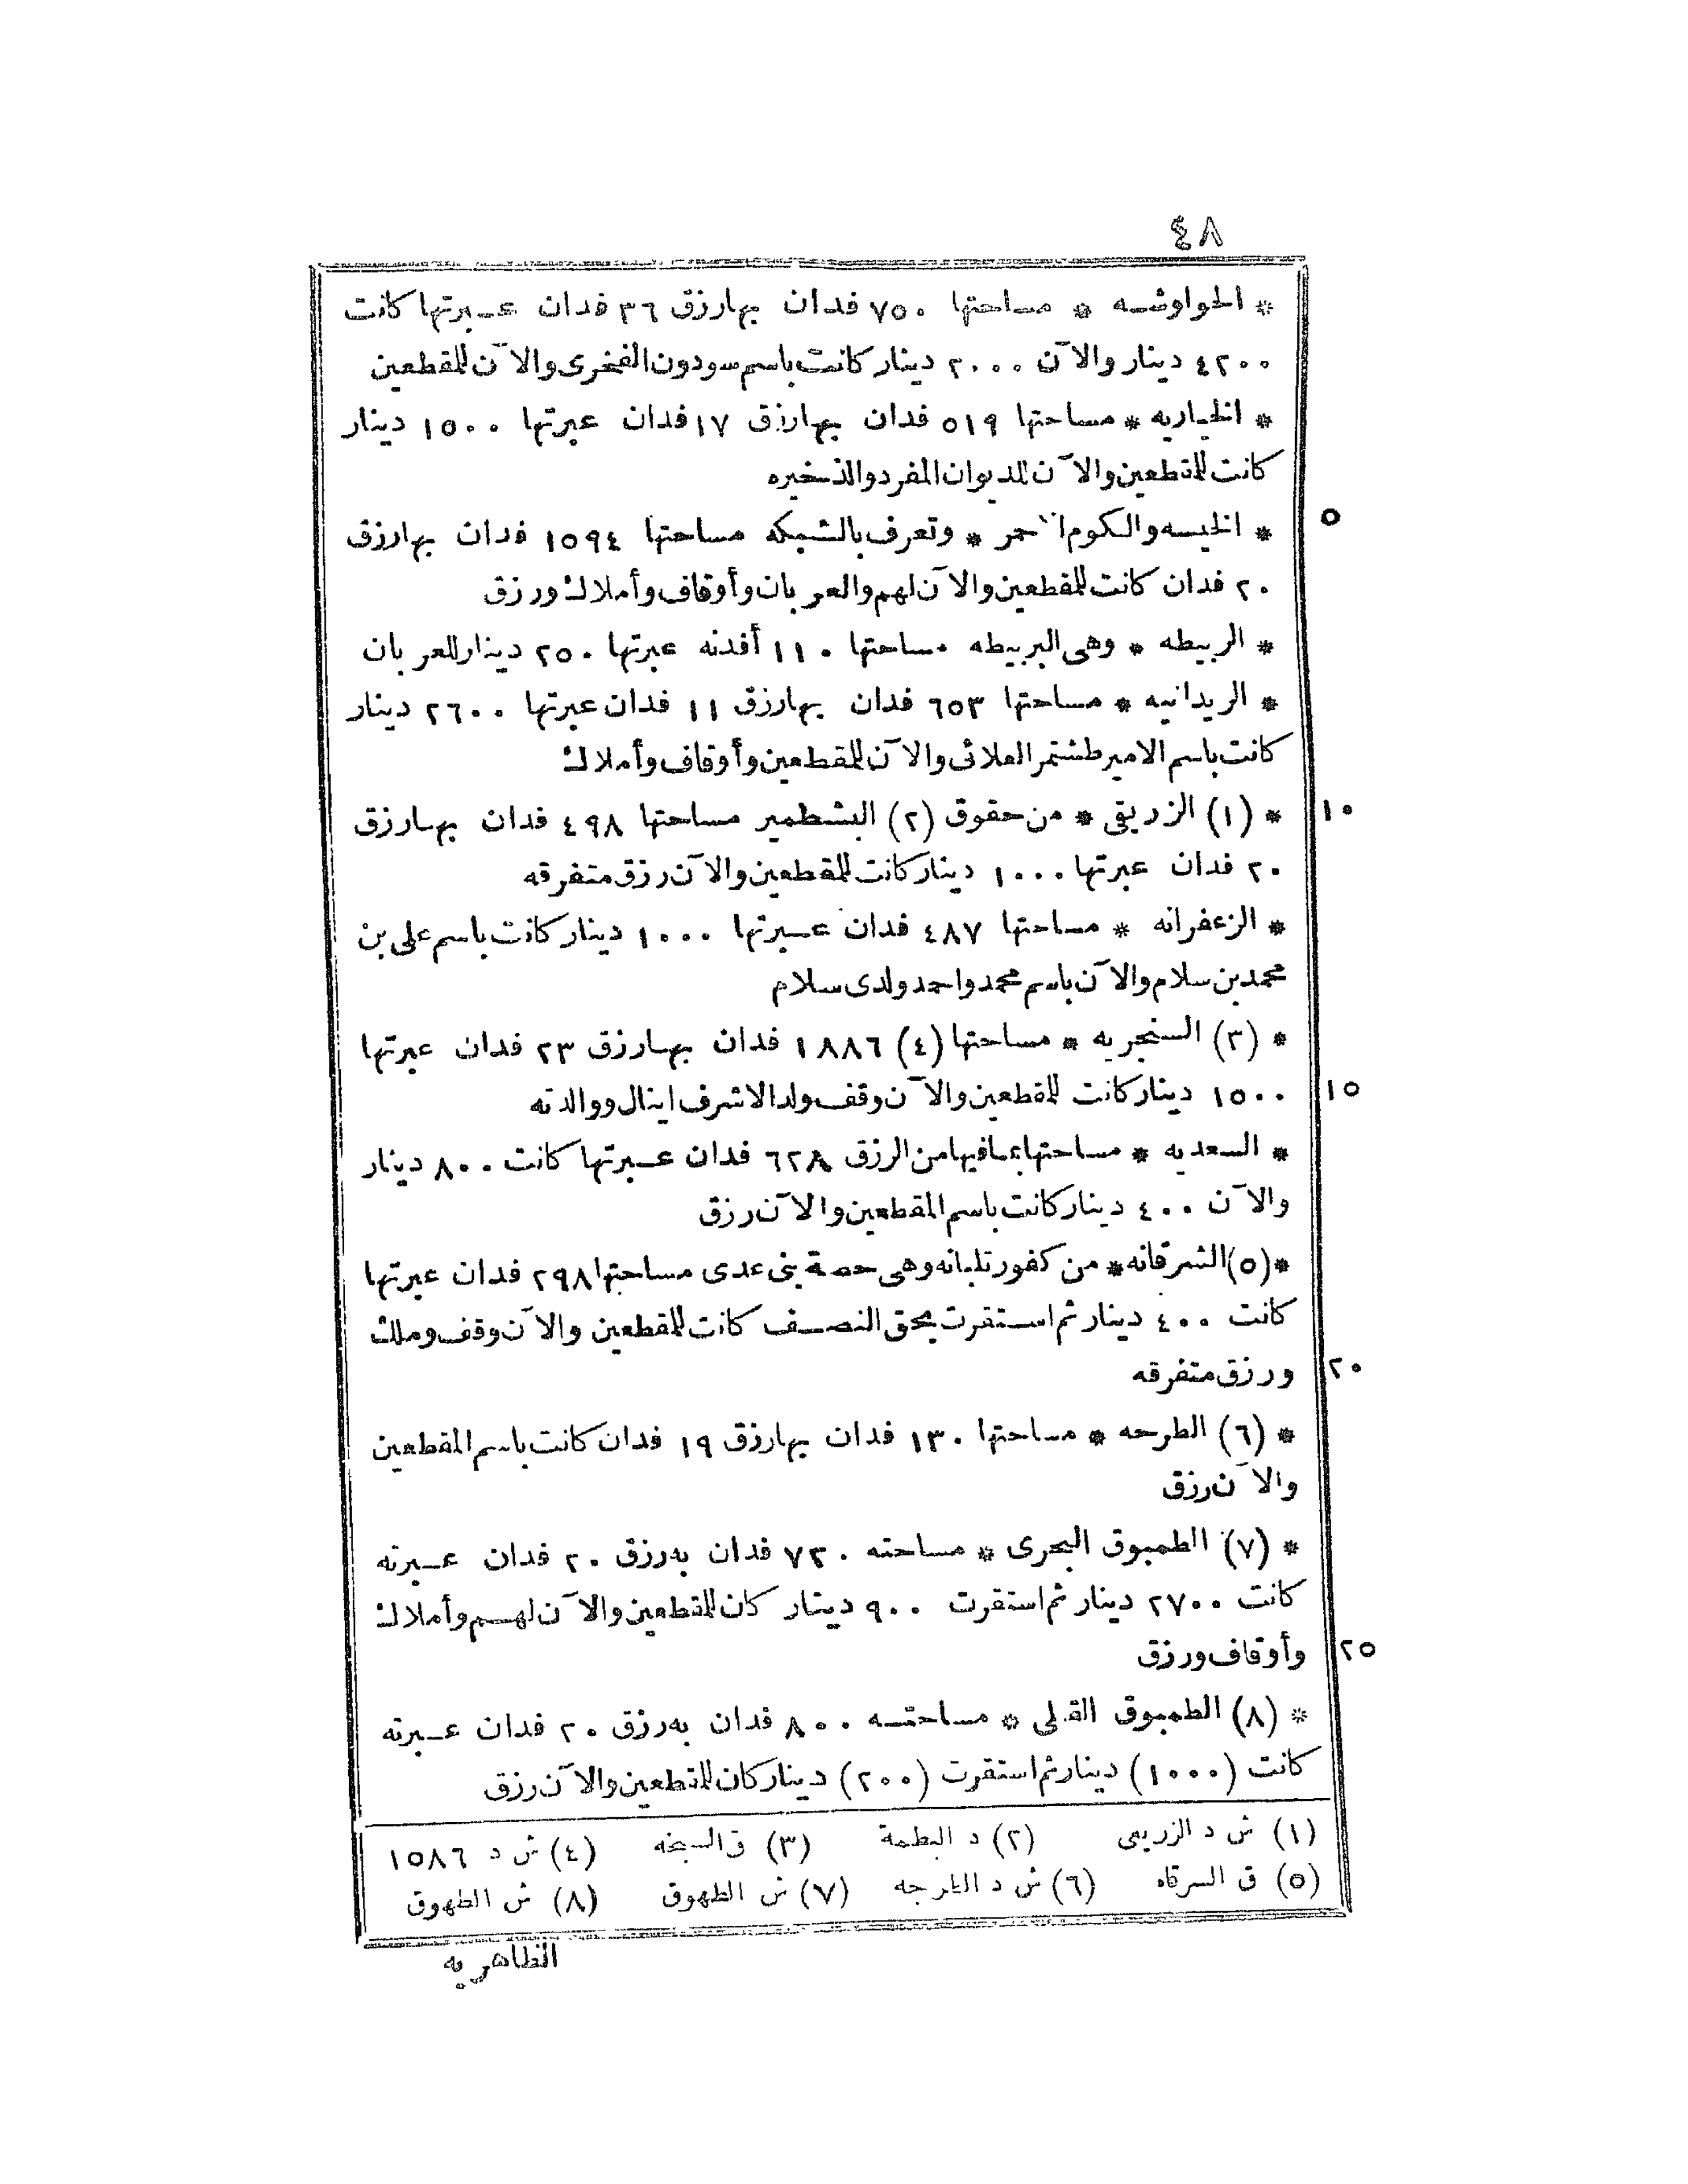 ٤٨
* الحواوشه * مساحتها ٧٥٠ فدان بهارزق ٣٦ فدان عبرتها كانت
٤٢٠٠ دينار والآن ٢٠٠٠ دينار كانت باسم سودون الفخرى والآن للمقطعين
* الخياريه * مساحتها ٥١٩ فدان بهارزق ١٧ فدان عبرتها ١٥٠٠ دينار
كانت للمقطعين والآن للديوان المفرد والذخيره
* الخيسه والكوم الاحمر * وتعرف بالشبكه مساحتها ١٥٩٤ فدان بهارزق ٥
٢٠ فدان كانت للمقطعين والآن لهم والعربان وأوقاف وأملاك ورزق
* الربيطه * وهى البربيطه مساحتها ١١٠ أفدنه عبرتها ٢٥٠ دينار للعربان
* الريدانيه * مساحتها ٦٥٣ فدان بهارزق ١١ فدان عبرتها ٢٦٠٠ دينار
كانت باسم الامير طشتمر العلائى والآن للمقطعين وأوقاف وأملاك
* (١) الزريقى * من حقوق (٢) البشطمير مساحتها ٤٩٨ فدان بهارزق ١٠
٢٠ فدان عبرتها ١٠٠٠ دينار كانت للمقطعين والآن رزق متفرقه
* الزعفرانه * مساحتها ٤٨٧ فدان عبرتها ١٠٠٠ دينار كانت باسم على بن
محمد بن سلام والآن باسم محمد واحمد ولدى سلام
* (٣) السنجريه * مساحتها (٤) ١٨٨٦ فدان بهارزق ٢٣ فدان عبرتها
١٥٠٠ دينار كانت للمقطعين والآن وقف ولد الاشرف اينال ووالدته ١٥
* السعديه * مساحتها بمافيها من الرزق ٦٢٨ فدان عبرتها كانت ٨٠٠ دينار
والآن ٤٠٠ دينار كانت باسم المقطعين والآن رزق
* (٥) الشرقانه * من كفور تلبانه وهى حصة بنى عدى مساحتها ٢٩٨ فدان عبرتها
كانت ٤٠٠ دينار ثم استقرت بحق النصف كانت للمقطعين والآن وقف وملك
ورزق متفرقه ٢٠
* (٦) الطرحه * مساحتها ١٣٠ فدان بهارزق ١٩ فدان كانت باسم المقطعين
والآن رزق
* (٧) الطمبوق البحرى * مساحته ٧٢٠ فدان به رزق ٢٠ فدان عبرته
كانت ٢٧٠٠ دينار ثم استقرت ٩٠٠ دينار كان للمقطعين والآن لهم وأملاك
وأوقاف ورزق ٢٥
* (٨) الطمبوق القبلى * مساحته ٨٠٠ فدان به رزق ٢٠ فدان عبرته
كانت (١٠٠٠) دينار ثم استقرت (٢٠٠) دينار كان للمقطعين والآن رزق
(١) ش د الزريبى (٢) د البطمة (٣) ق السبخه (٤) ش د ١٥٨٦
(٥) ق السرقاه (٦) ش د الطرجه (٧) ش الطهوق (٨) ش الطهوق
الظاهريه